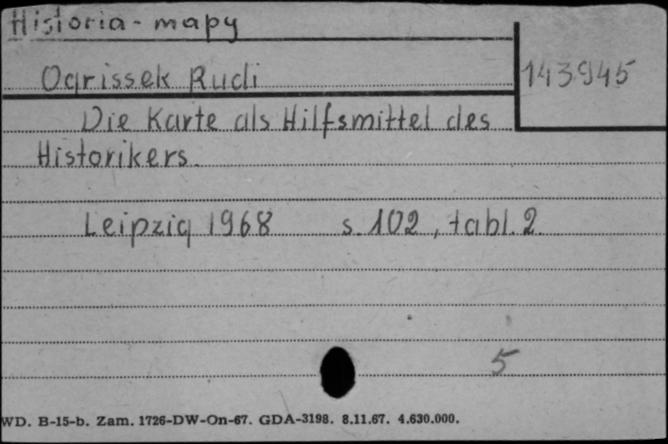 Historia - mapy
Ogrissek Rudi
143945
Die Karte als Hilfsmittel des
Historikers.
Leipzig 1968 s. 102, tabl. 2.
5
WD. B-15-b. Zam. 1726-DW-On-67. GDA-3198. 8.11.67. 4.630.000.